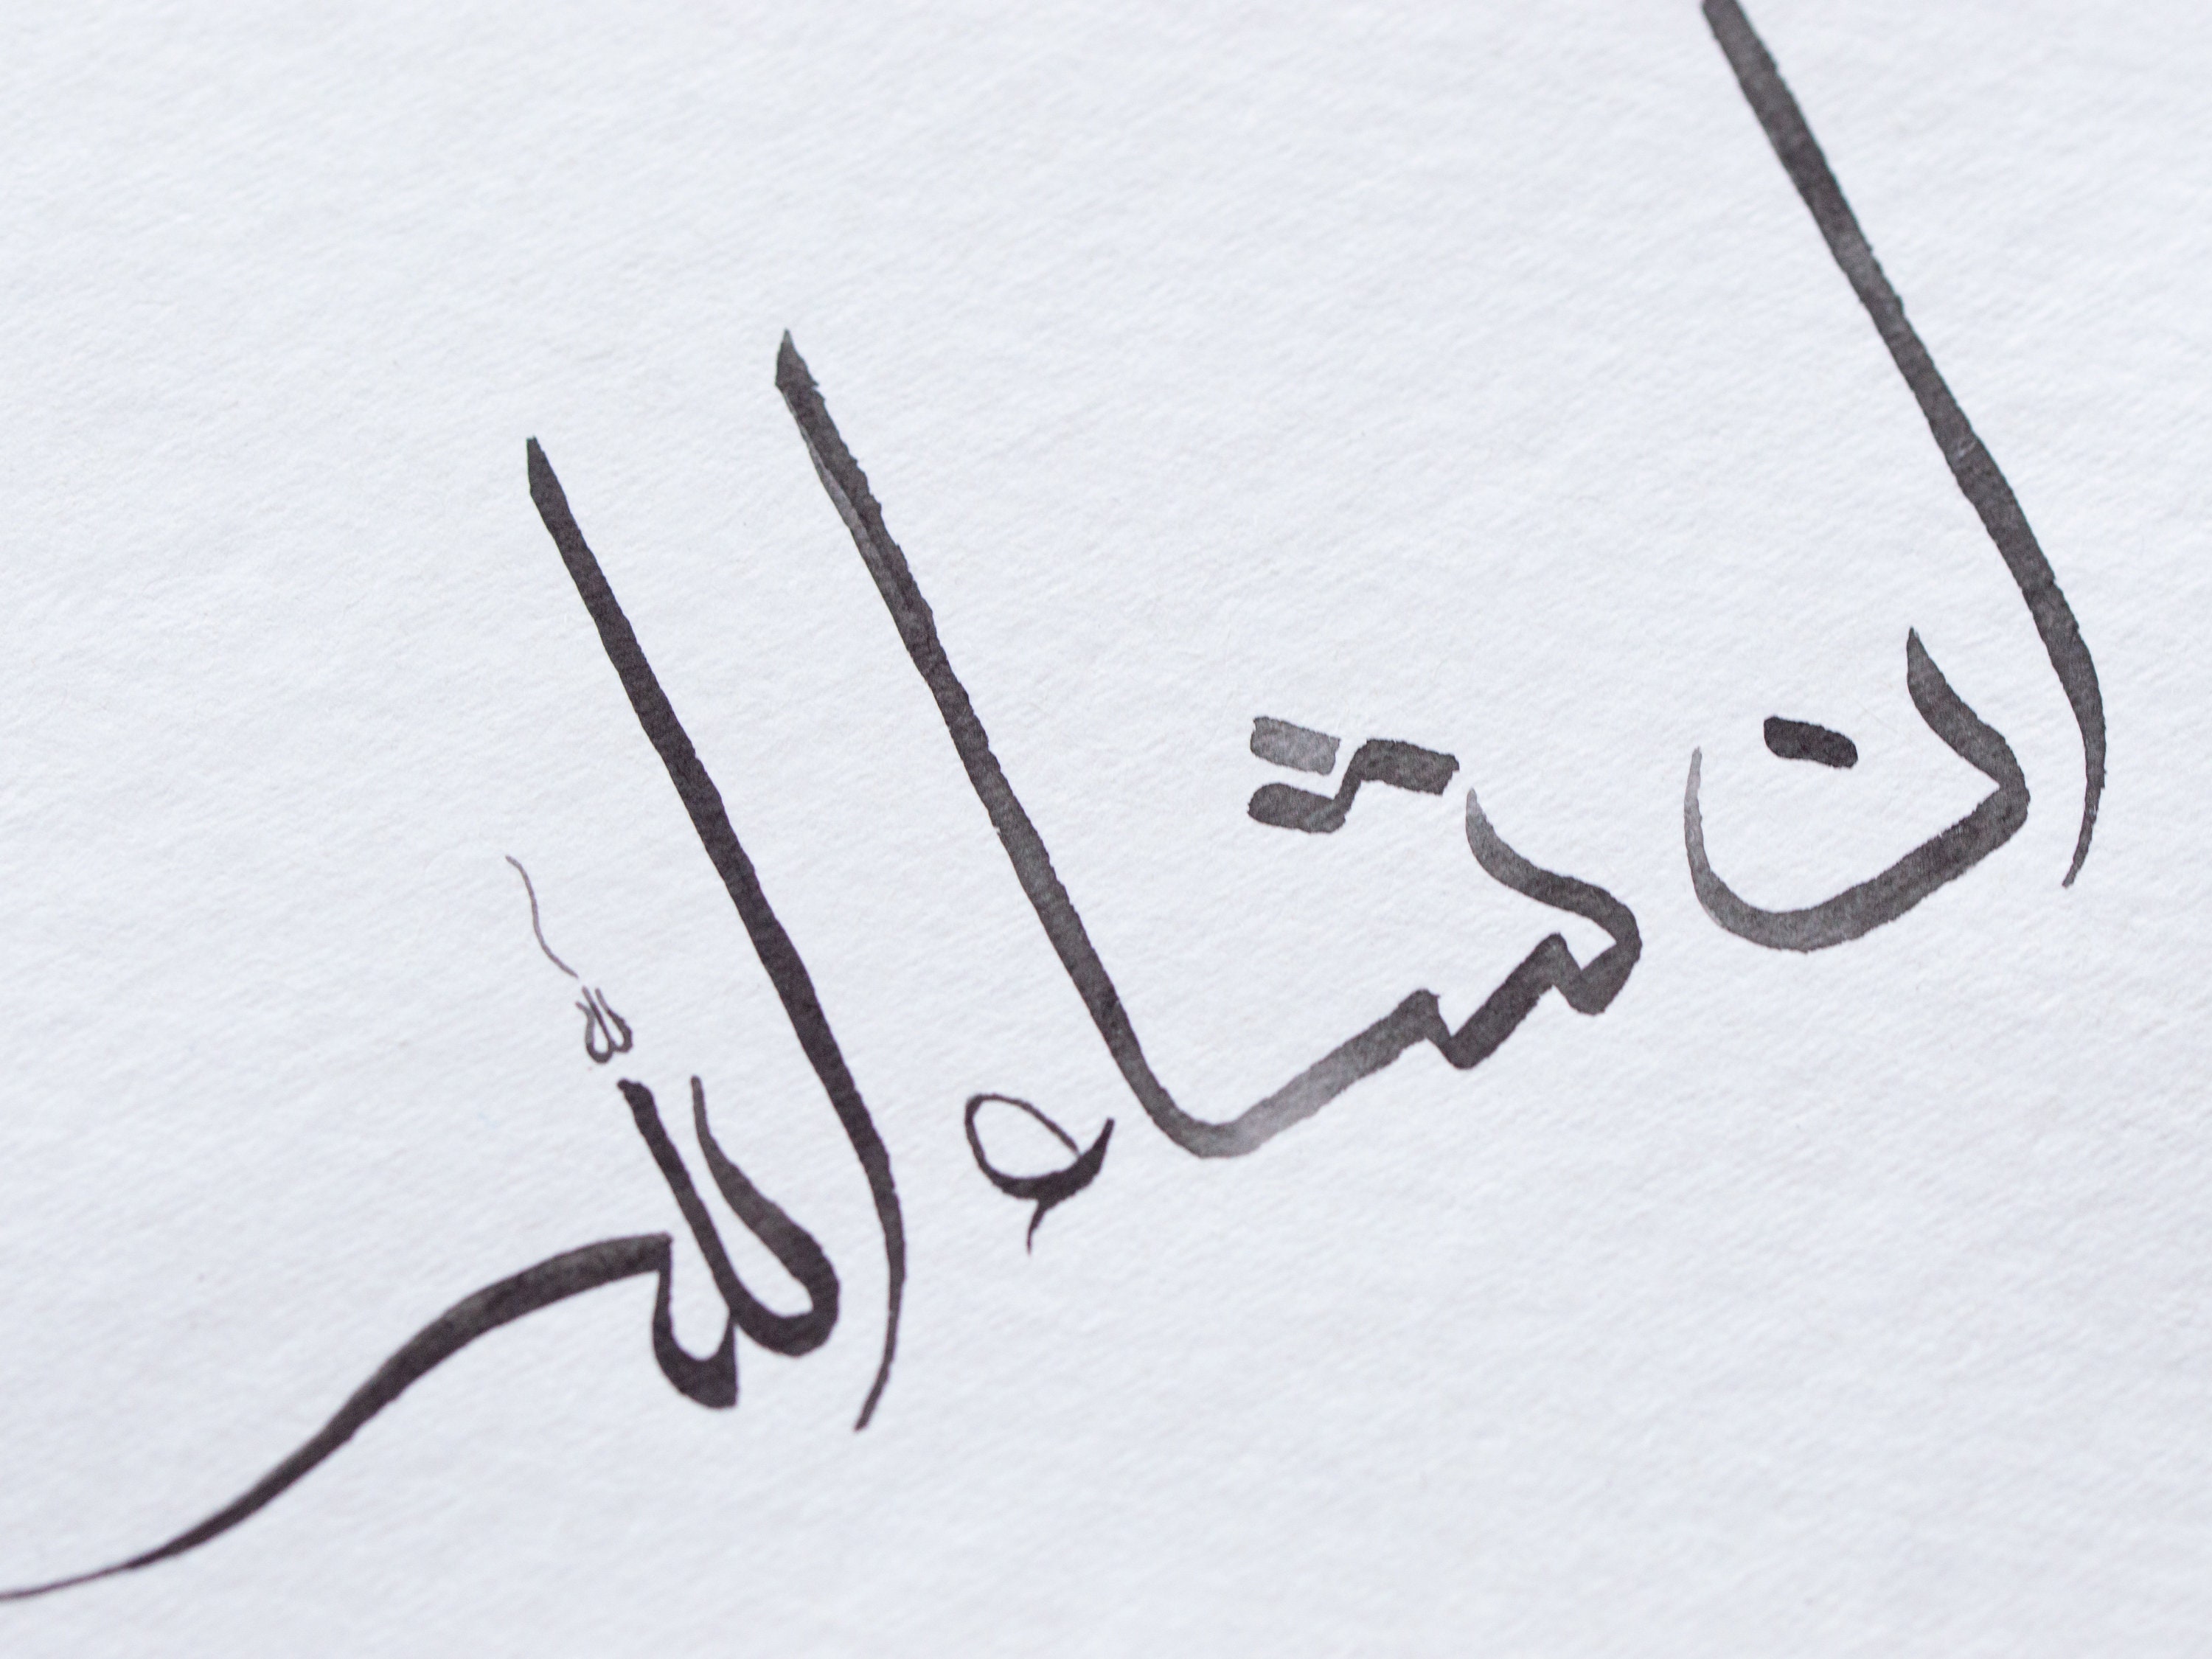 ان شاء الله